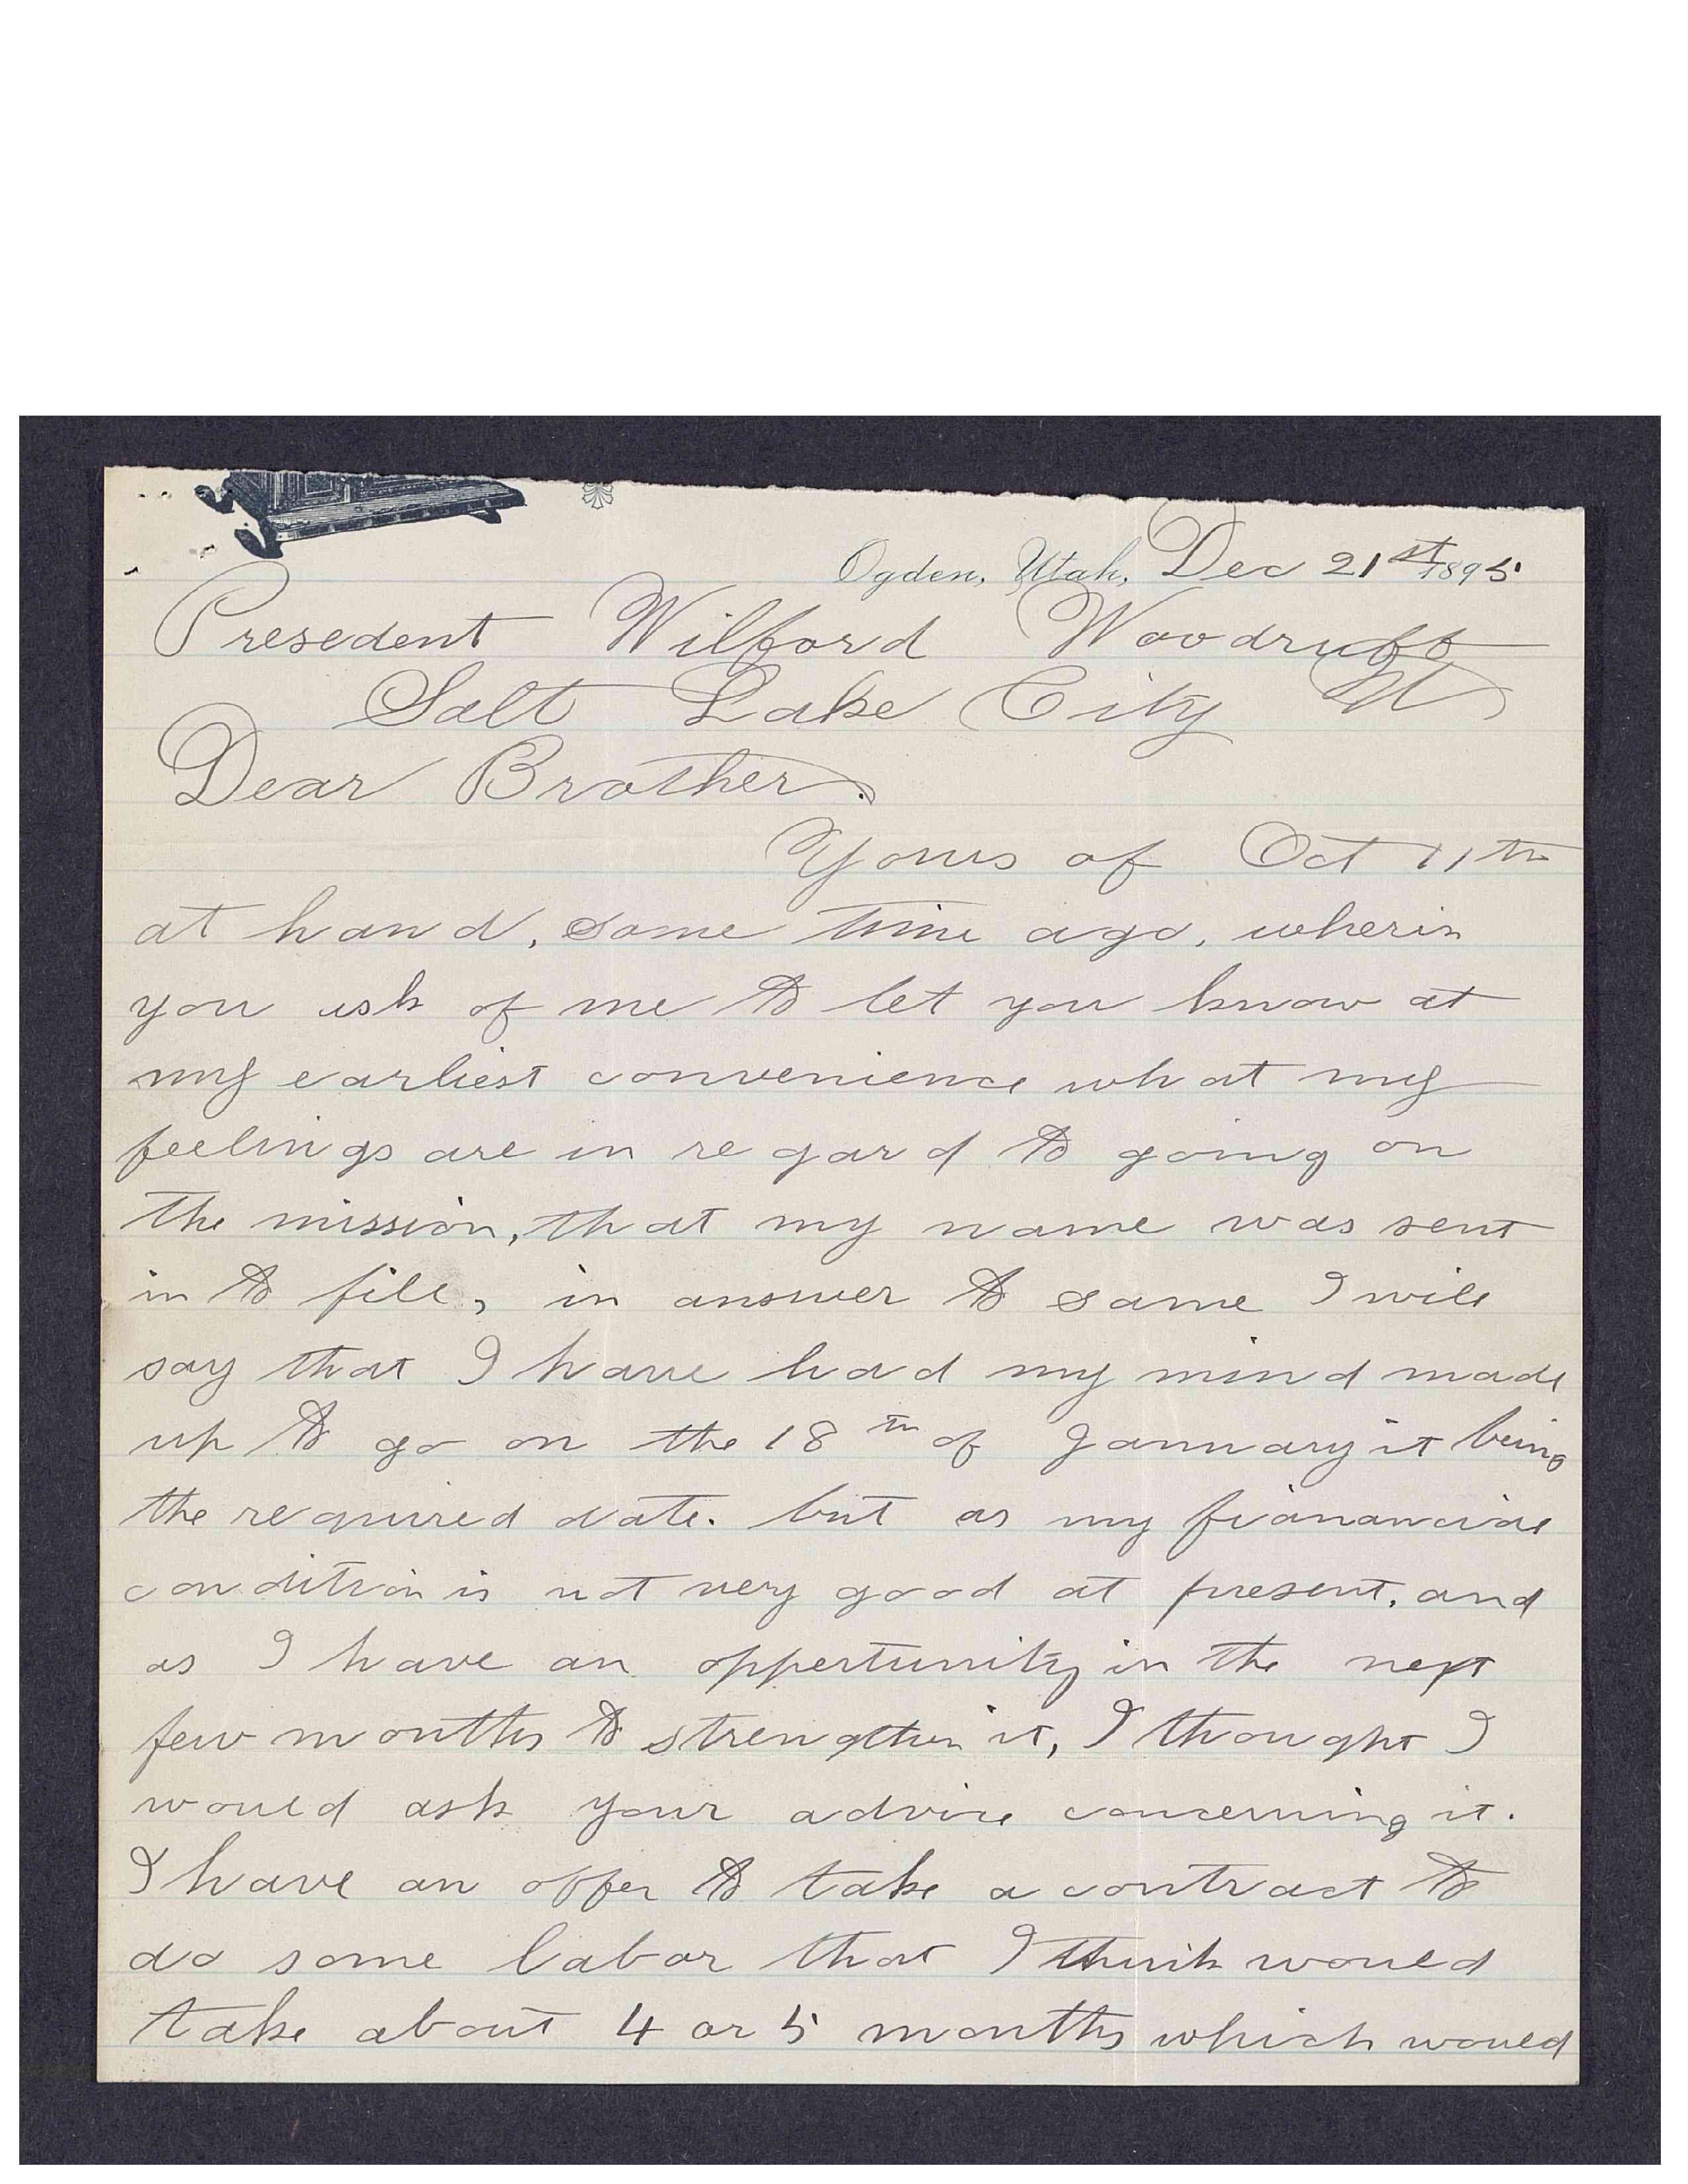 Ogden, Utah, Dec 21st 1895
Presedent Wilford Woodruff
Salt Lake City Ut
Dear Brother.
Yours of Oct 11th
at hand, some time ago, wherin
you ask of me to let you know at
my earliest convenience what my
feelings are in regard to going on
the mission, that my name was sent
in to fill, in answer to same I will
say that I have had my mind made
up to go on the 18th of Jannuary it being
the required date. but as my fianancial
condition is not very good at present, and
as I have an oppertunity in the next
few months to strengthen it, I thought I
would ask your advice concerning it.
I have an offer to take a contract to
do some labor that I think would
take about 4 or 5 months which would